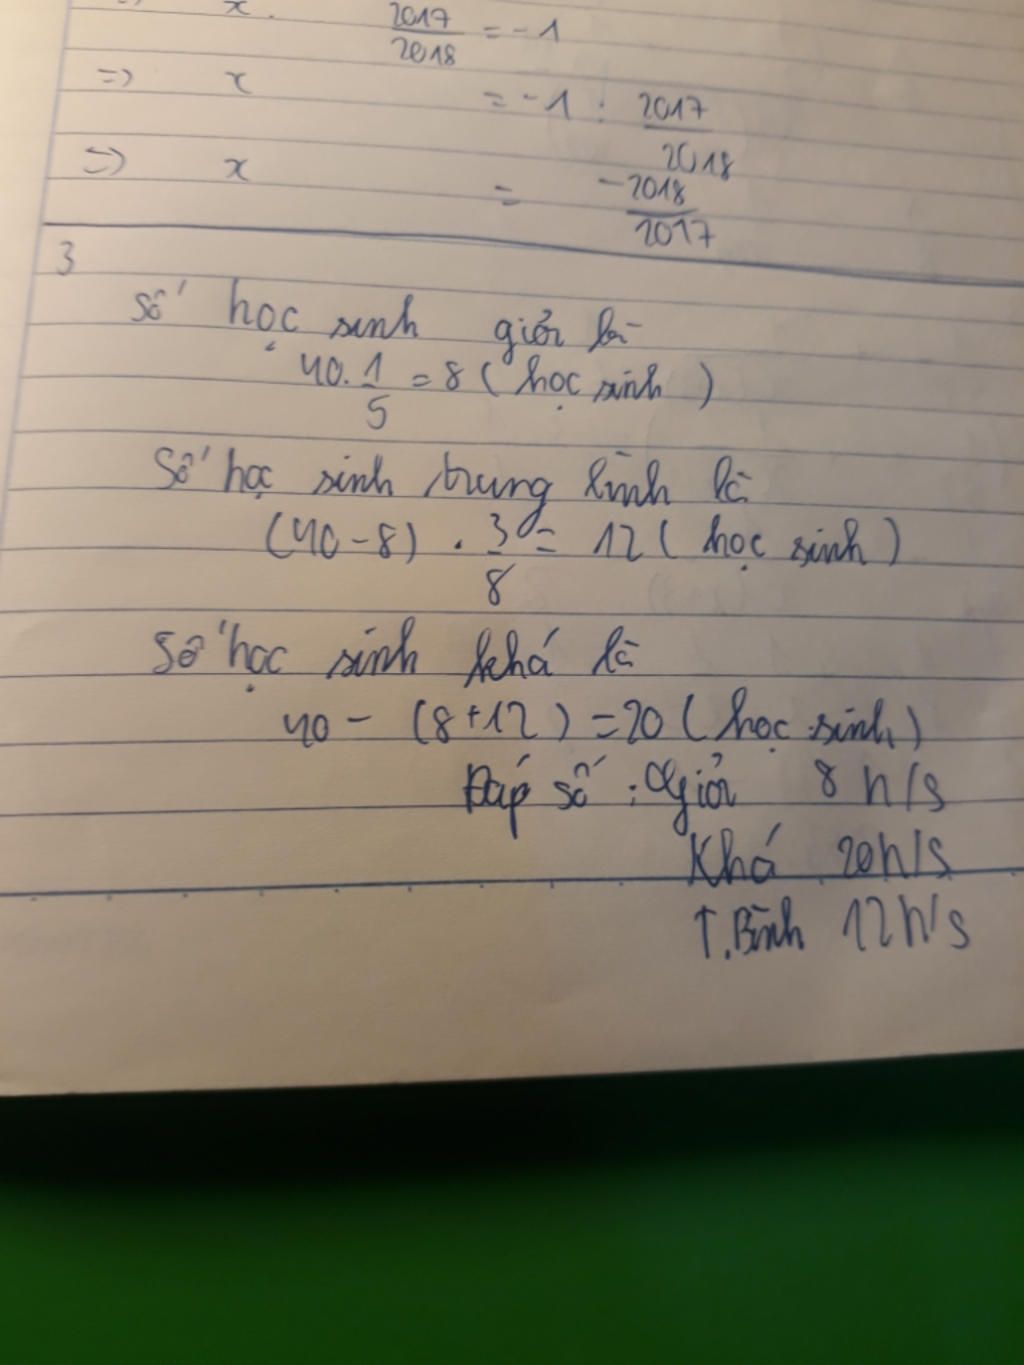 x . 2017/2018 = -1
=> x = -1 : 2017/2018
=> x = -2018/2017
3
Số học sinh giỏi là
40. 1/5 = 8 ( học sinh )
Số học sinh trung bình là
(40 - 8) . 3/8 = 12 ( học sinh )
Số học sinh khá là
40 - (8+12) = 20 ( học sinh )
Đáp số : Giỏi 8 h/s
Khá 20 h/s
T.Bình 12 h/s